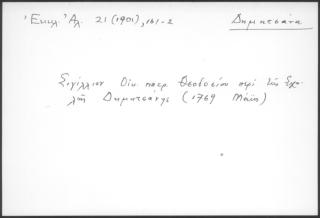 Ἐκκλ. Ἀλ. 21 (1901), 161-2
Δημητσάνα
Σιγίλλιον Οἰκ. πατρ. Θεοδοσίου περὶ τῆς Σχο-
λῆς Δημητσάνης (1769 Μάϊος)